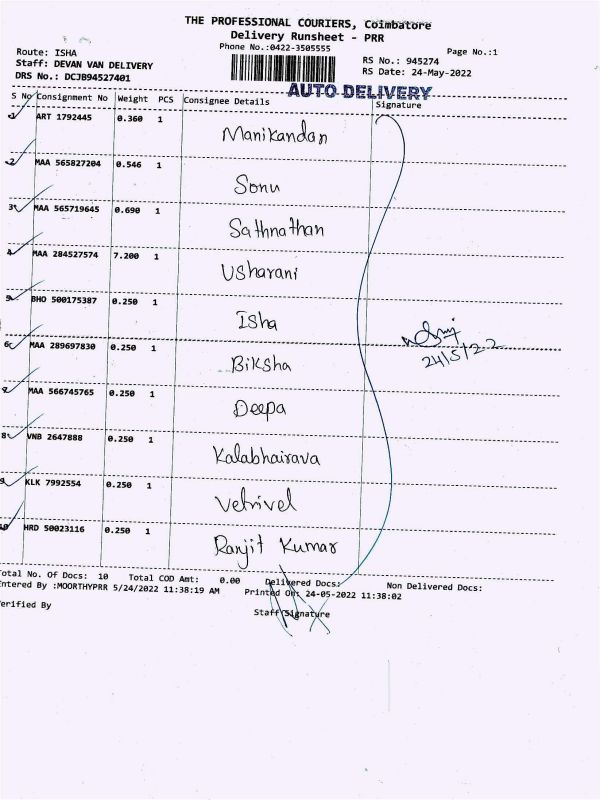 THE PROFESSIONAL COURIERS, Coimbatore
Delivery Runsheet - PRR
Phone No.:0422-3505555
Page No.:1
Route: ISHA
Staff: DEVAN VAN DELIVERY
DRS No.: DCJB94527401
RS No.: 945274
RS Date: 24-May-2022
AUTO DELIVERY
S No Consignment No Weight PCS Consignee Details Signature
1 ART 1792445 0.360 1 Manikandan
2 MAA 565827204 0.546 1 Sonu
3 MAA 565719645 0.690 1 Sathnathan
4 MAA 284527574 7.200 1 Usharani
5 BHO 500175387 0.250 1 Isha
6 MAA 289697830 0.250 1 Biksha
24/5/22
7 MAA 566745765 0.250 1 Deepa
8 VNB 2647888 0.250 1 Kalabhairava
9 KLK 7992554 0.250 1 Vetrivel
10 HRD 50023116 0.250 1 Ranjit Kumar
Total No. Of Docs: 10 Total COD Amt: 0.00 Delivered Docs: Non Delivered Docs:
Entered By :MOORTHYPRR 5/24/2022 11:38:19 AM Printed On: 24-05-2022 11:38:02
Verified By
Staff Signature